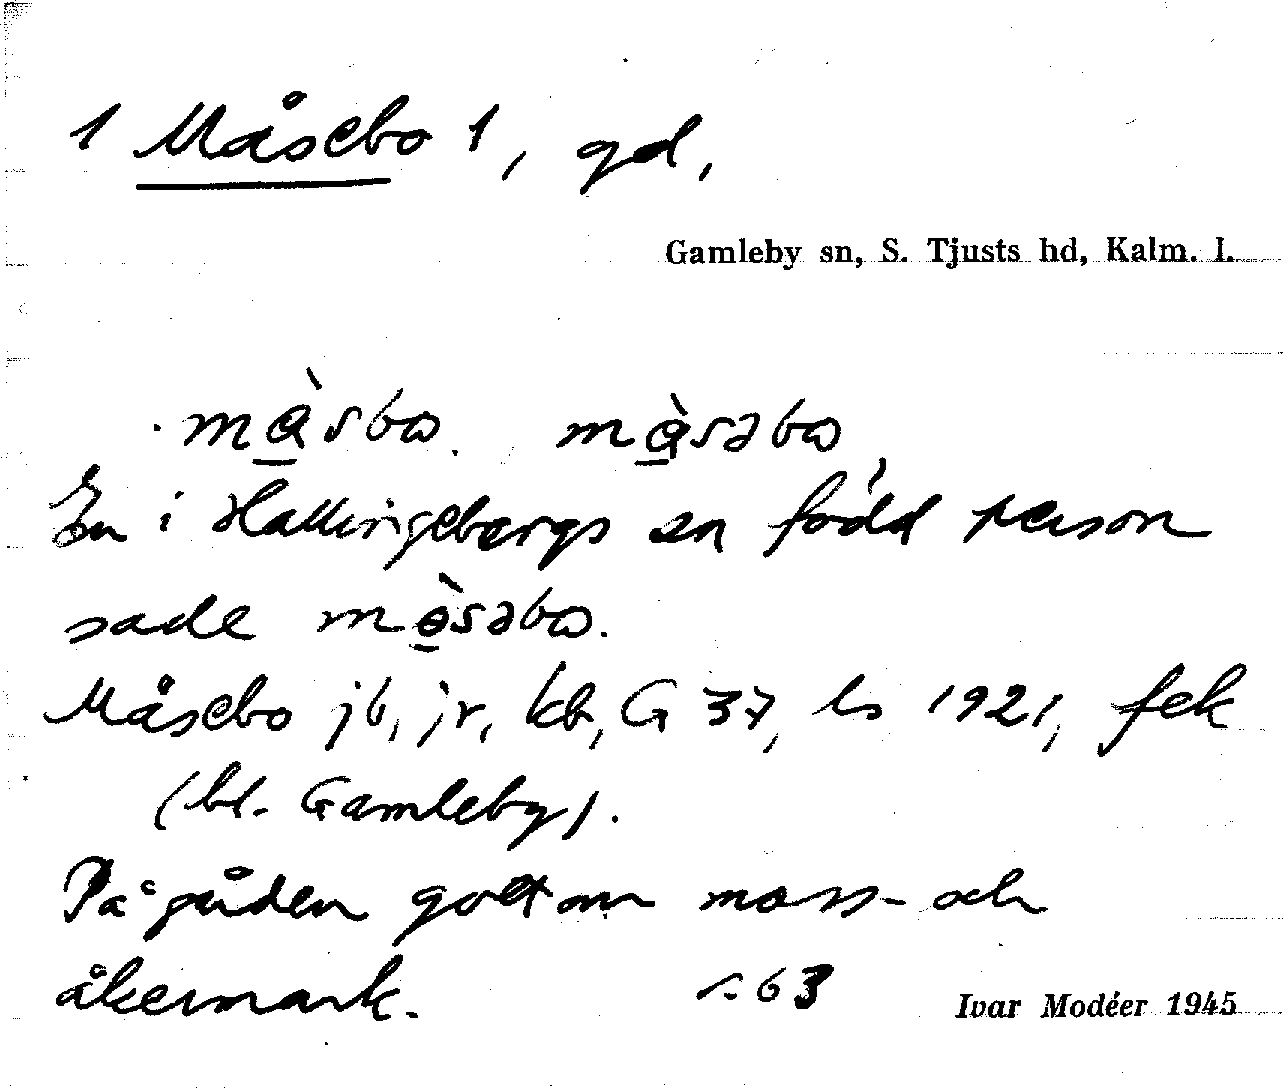 1 Måsebo 1, gd,
Gamleby sn, S. Tjusts hd, Kalm. l.
En i Hallingebergs sn född person
sade
Måsebo jb, jr, kb, G 37, ls 1921, fek
(bl. Gamleby).
På gården gott om moss- och
åkermark. s. 63
Ivar Modéer 1945